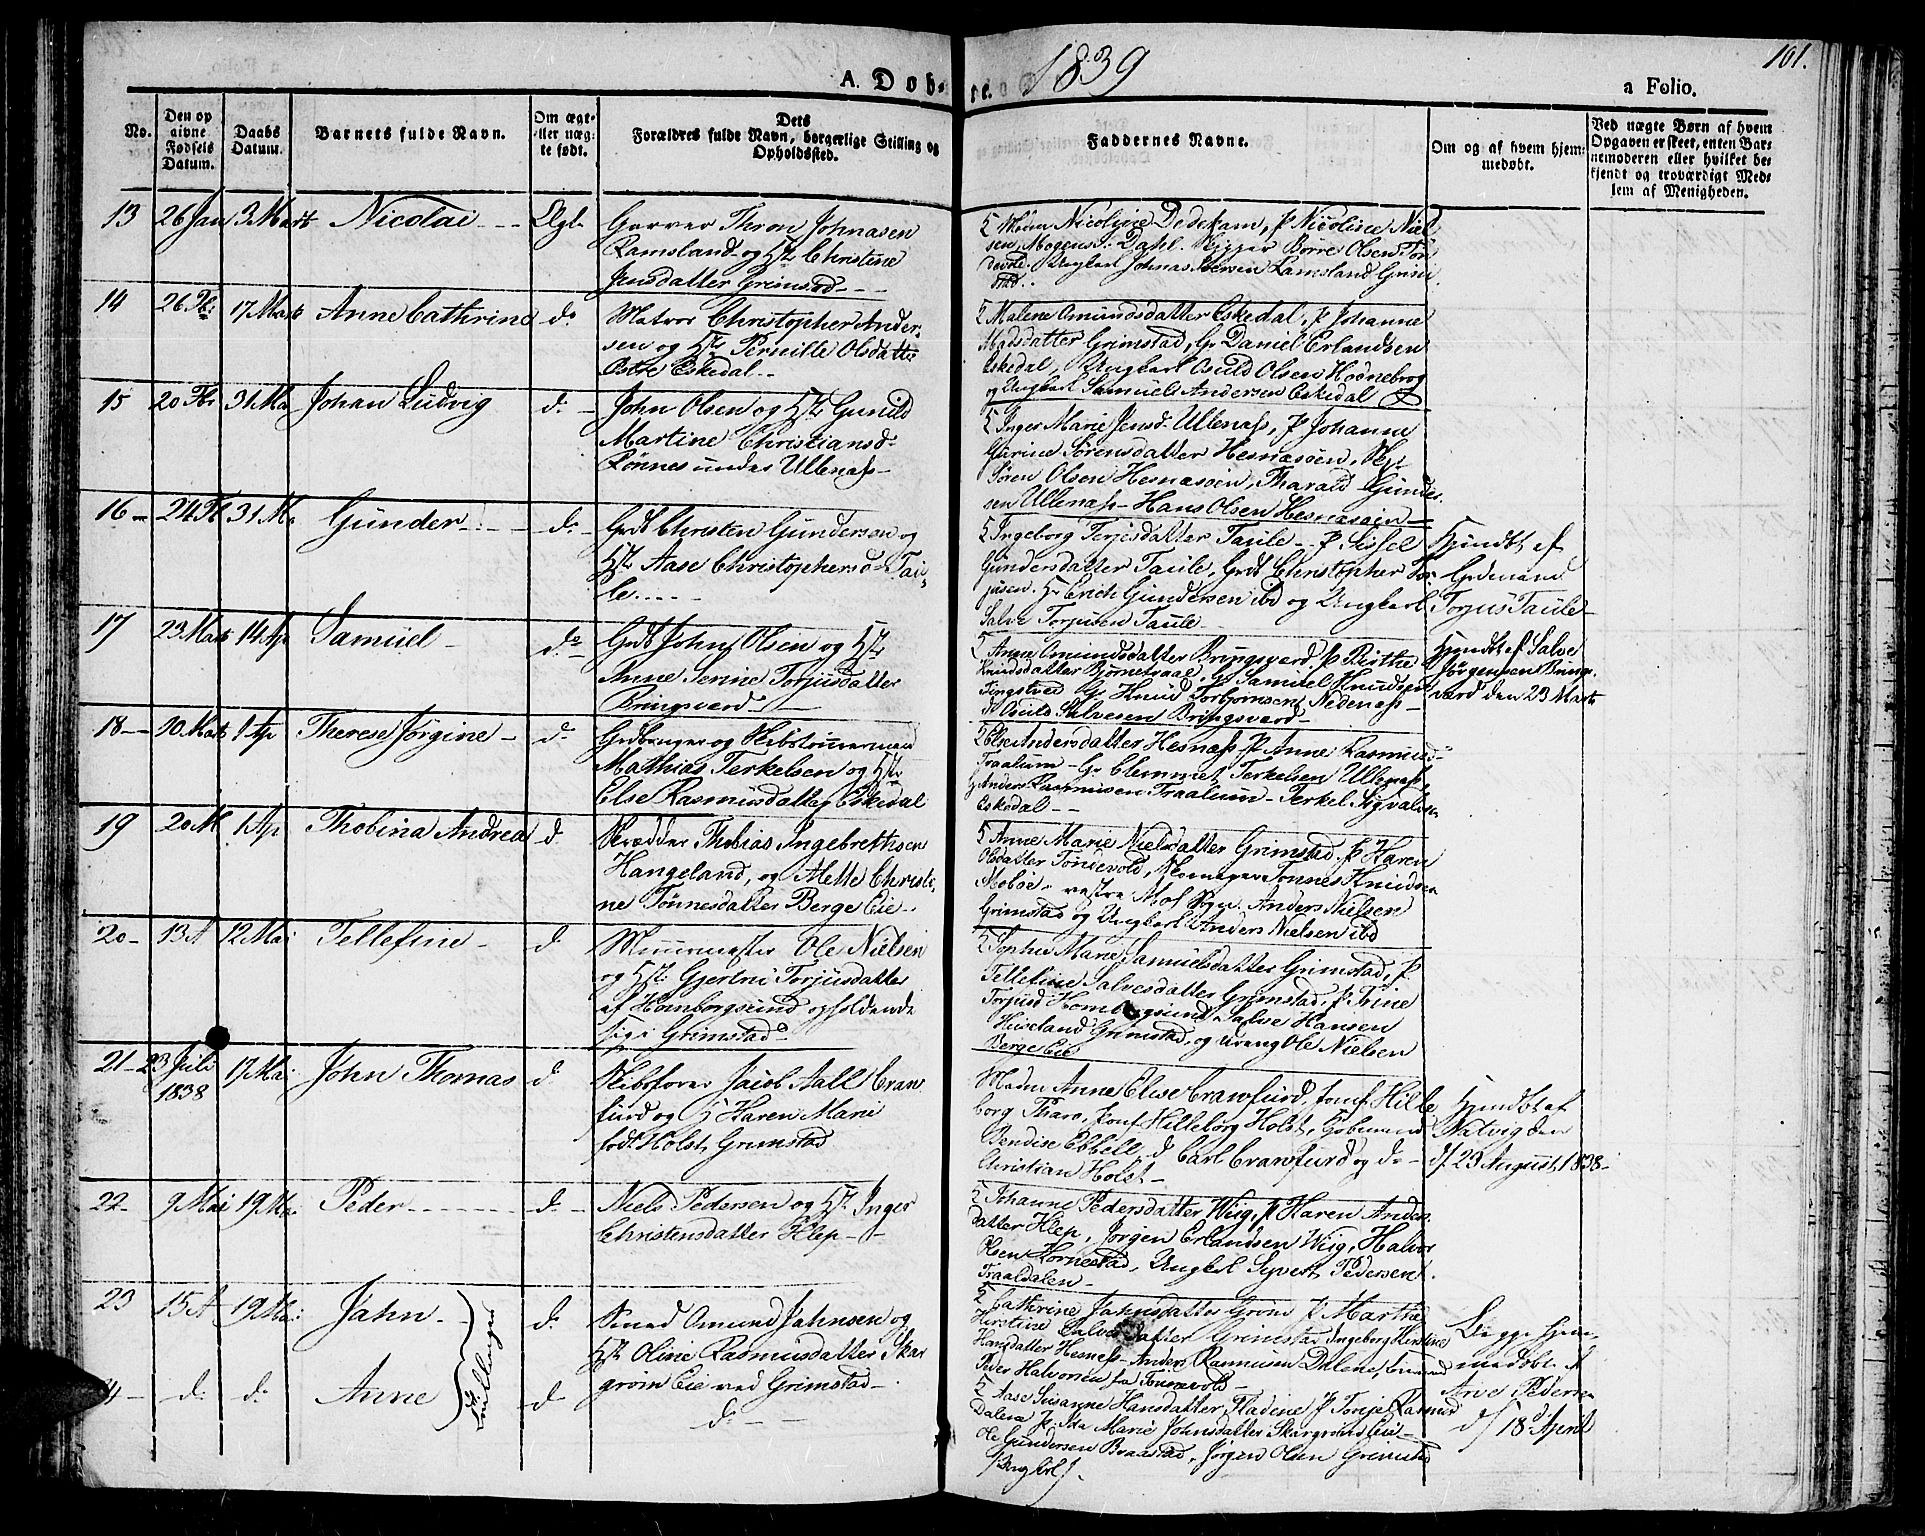 1839
101.
A. Døb-
te.
a Folio.
No.
Den op
givne
Fødsels
Datum.
Daabs
Datum.
Barnets fulde Navn.
Om ægt-
eller uæg-
te født.
Dets
Forældres fulde Navn, borgerlige Stilling og
Opholdssted.
Faddernes Navne.
Om og af hvem hjem-
medøbt.
Ved uægte Børn af hvem
Opgaven er skeet, enten Bar-
nemoderen eller hvilket be-
kjendt og troværdigt Med-
lem af Menigheden.
13 26 Jan 3 Marts Nicolai Ægt.
Garver Thron Johnasen
Ramsland og Hst Christine
Jensdatter Grimstad
Mdm Nicoline Dedekam, P Nicoline Niel
sen, Mogens Dahl. Skipper Børre Olsen Tøn
devold. Ungkarl Johnas Ramsland Grim
stad.
14 26 17 Marts Anne Cathrine do
Matros Christopher Ander
sen og Hst Pernille Olsdatter
Østre Eskedal
Malene Omundsdatter Eskedal, P Johanne
Madsdatter Grimstad, G Daniel Erlandsen
Eskedal, Ungkarl Osuld Olsen Hodnebrog
og Ungkarl Samuel Andersen Eskedal
15 20 31 Ma Johan Ludvig d.
John Olsen og Hst Gunild
Martine Christiansd.
Rønnes under Ullenæss
Inger Marie Jensd. Ullenæss, P Johanne
Sørensdatter Hesnæsøen,
Søren Olsen Hesnæsøen, Tharald Gunder
sen Ullenæss Hans Olsen Hesnæsøen
16 24 31 Ma Gunder d.
Grdb Christen Gundersen og
Hst Aase Christophersd. Tau
le
Ingeborg Terjesdatter Taule P Sissel
Gundersdatter Taule, Grdb Christopher Tor
jusen. G Erich Gundersen ibd og Ungkarl
Salve Torjusen Taule
Hjmdbt af
Grdmand
Torjus Taule
17 23 Marts 14 Ap Samuel do
Grdb John Olsen og Hst
Anne Serine Torjusdatter
Bringsværd
Anne Omundsdatter Bringsværd, P Birthe
Knudsdatter Bjørnetraae, G Samuel Knudsen
Tingstved Gr Knud Torbjornsen Nedenæss
Osuld Salvesen Bringsværd
Hjmdbt af Salve
Jørgensen Brings
værd den 23 Marts
18 10 Marts 1 Ap Therese Jørgine d.
Grdbruger og Skibstømmermand
Mathias Terkelsen og Hst
Else Rasmusdatter Eskedal
Else Andersdatter Hesnæss, P Anne Rasmusd
Traalum G Clemmet Terkelsen Ullenæss
G Anders Rasmusen Traalum Terkel Sigvaldsen
Eskedal
19 20 M 1 Ap Thobina Andrea d
Skrædder Thobias Ingebrethsen
Hangeland, og Mette Christi
ne Tønnesdatter Berge Eie
Anne Marie Nielsdatter Grimstad, P Karen
Olsdatter Tøndevold, Skomager Tønnes Knudsen
vestre Anders Nielsen
Grimstad og Ungkarl Anders Nielsen ibd
20 13 A 12 Mai Tellefine d
Muurmester Ole Nielsen
og Hst. Gjertru Torjusdatter
af Homborgsund opholdende
sig i Grimstad
Sophie Marie Samuelsdatter Grimstad, P
Tellefine Salvesdatter Grimstad, P Trine
Torjusd Homborgsund Salve Hansen
Huseland Grimstad, og Ole Nielsen
Berge Eie
21 23 Juli
1838
17 Mai John Thomas d
Skibsfører Jacob Aall Craw
furd og H Karen Marie
født Holst, Grimstad
Madm Anne Elise Crawfurd, Jomf Hille
borg Tharo, Jomf Hilleborg Holst, Kjøbmænd
Bendise Ebbell, d Carl Crawfurd og do
Christian Holst
Hjmdbt af
Natvig den
23 August 1838
22 9 Mai 19 Ma Peder d.
Niels Pedersen og Hst. Inger
Christensdatter Klep
Johanne Pedersdatter Wiig, P Karen Anders
datter Klep, Jørgen Erlandsen Wiig, Halvor
Olsen Kornestad, Ungkrl Syvert Pedersen
Traaldalen
23 15 A 19 Mai Jahn d.
Omund Jahnsen og
Hst. Oline Rasmusdatter Skar
grøm Eie ved Grimstad
Cathrine Jahnsdatter Grøm P Marthe
Kirstine Salvesdatter Grimstad Ingeborg Kirstine
Hansdatter Hesnæss Anders Rasmusen Dalene,
Peder Halvorsen fra Tønnevold
Begge hjem
medøbt af
Arve Pedersen
18 April
d. d. Anne d
Tvillinger
d.
Aase Susanne Hansdatter P Terje Rasmus
Dalene Ida Marie Johnsdatter Skargrøm Eie
Ole Gundersen Braastad, Jørgen Olsen Grimstad
Ungkrl